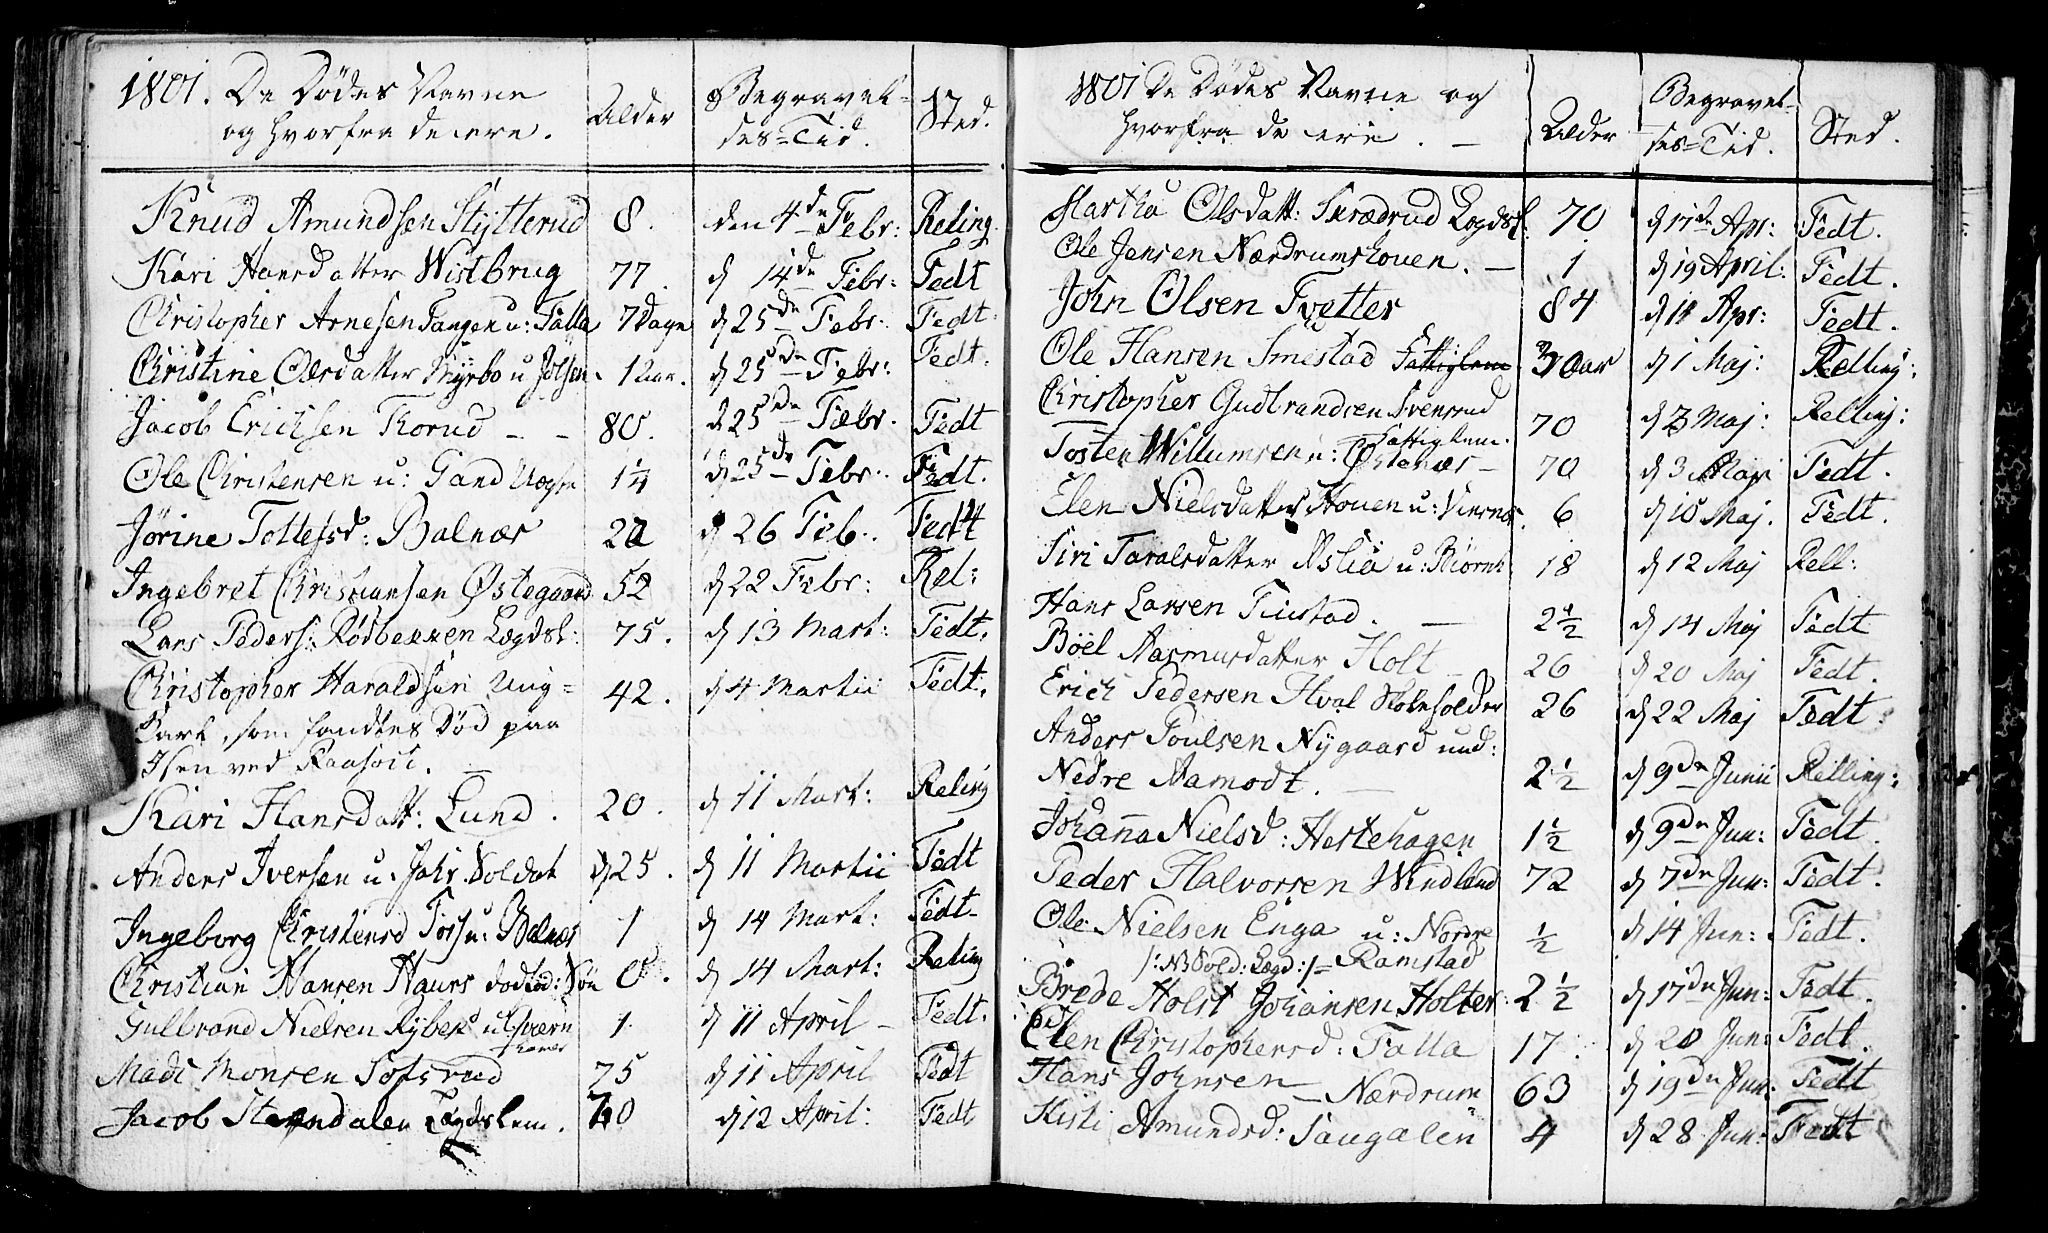 1801. De Dødes Navne
og hvorfra de ere.
Alder
Begravel-
ses-Tid.
Sted.
Knud Amundsen Stytterud 8. den 4de Febr: Reling.
Kari Hansdatter Wistbrug 77. d 14de Febr: Fedt
Christopher Arnesen Tangen u: Falla 7 Dage d 25de Febr: Fedt.
Christine Olsdatter Myrbo u 1 Aar. d 25de Febr: Fedt.
Jacob Erichsen Thorud - - 80. d 25de Febr. Fedt
Ole Christensen u: 1¼ d 25de Febr. Fedt.
Jørine Tollefsd: Balnær d 26 Feb. Fedt
Ingebret Christiansen Østegaard 52 d 22 Febr: Rel:
Lars Peders: Rødbekken Lægdsl: 75. d 13 Mart: Fedt.
Christopher Haraldsen Ung= 42. d 4 Martii Fedt.
Karl, som fandtes Død paa
Isen ved
Kari Hansdatt: Lund. 20. d 11 Mart: Reling
Anders Iversen u. Soldat 25. d 11 Martii Fedt
Ingeborg Christensd Foss u: Balnær 1 d 14 Mart: Fedt
Christian Hansen Haurs dødfød: Søn 0. d 14 Mart: Reling
Gulbrand Nielsen 1. d 11 April - Fedt.
Mads Monsen Sofsrud 75 d 11 April Fedt
Jacob Stenndalen Lægdslem. d 12 April: Fedt
1801 De Dødes Navne og
hvorfra de ere. -
Alder
Begravel-
ses-Tid.
Sted.
Martha Olsdatt: Skrædrud Lægdsl: 70 d 17de Apr: Fedt.
Ole Jensen Nærdrumshouen. - 1 d 19 April: Fedt.
John Olsen Tvetter 84 d 11 Apr: Fedt.
Ole Hansen Smestad Fattiglem 70 Aar d 1 Maj: Relling:
Christopher Gudbrandsen Svensrud 70 d 3 Maj: Relling:
Fattiglem.
Tosten Willumsen u: Østenær - 70 d 3 Maji Fedt.
Elen Nielsdatter Houen u: 6 d 10 Maj. Fedt.
Siri Taralsdatter Aslia u: Biørnh: 18 d 12 Maj Rell:
Hans Larsen Tiustad. - 2½ d 14 Maj Fedt
Böel Aasmusdatter Holt - 26 d 20 Maj Fedt.
Erich Pedersen Hval Skoleholder 26 d 22 Maj Fedt:
Anders Poulsen Nygaard und:
Nedre Aamodt. - 2½ d 9de Junii Relling:
Johanna Nielsd: Hestehagen 1½ d 9de Jun: Fedt.
Peder Halvorsen Windland 72 d 7de Jun: Fedt.
Ole Nielsen Enga u: Nordre ½ d 14 Jun: Fedt.
/: NB Sold: Lægd :/ = Ramstad
Brede Holst Johansen Holter: 2½ d 17de Jun: Fedt.
Elen Christophersd: Falla 17. d 20 Jun: Fedt.
Hans Johnsen - Nærdrum 63 d 19de Jun: Fedt
Kisti Amundsd: Saugalen 4 d 28 Jun: Fedt